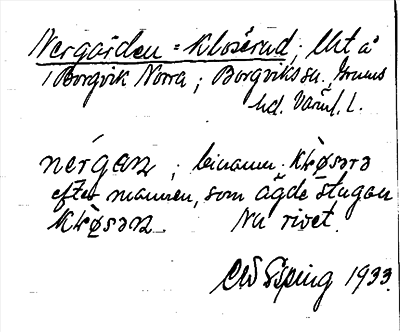 Nergården = Kloserud; lht å
i Borgvik Norra; Borgviks sn. Grums
hd. Värml. l.
nérgan; binamn. klø̀sərə
efter mannen, som ägde stugan
klø̀sən. Nu rivet.
1933.